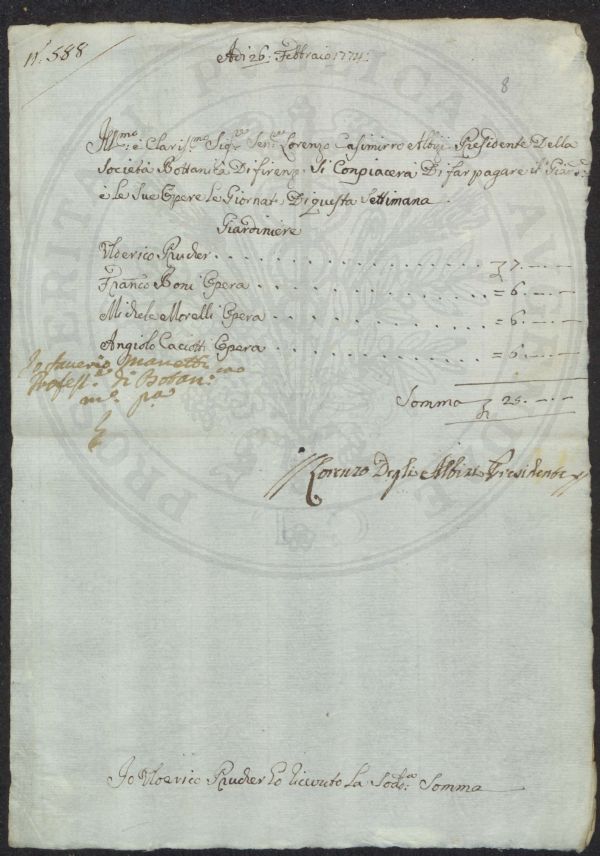 N.º 588
Adi 26: Febbraio 1774:
8
Ill.mo e Claris.mo Sig.re Sen.re Lorenzo Casimirro Albizi Presidente Della
Società Bottanica Di firenz. Si Conpiacerà Di far pagare il Giard.e
e le Sue Opere le Giornat. Di questa Settimana.
Giardiniere
Uloerico Prucker . . . . . . . . . . . . . . . . . . . . . 7. — . —
Franco Boni Opera . . . . . . . . . . . . . . . . . . . = 6. — . —
Michele Morelli Opera . . . . . . . . . . . . . . . . . = 6. — . —
Angiolo Caciotti Opera . . . . . . . . . . . . . . . . = 6. — . —
Io Saverio Manetti
Profess.e di Botan.ca
m.o p.a
Somma 25. — . —
Lorenzo Degli Albizi Presidente
Io Uloerico Prucker ho ricevuto La Sod.ta Somma